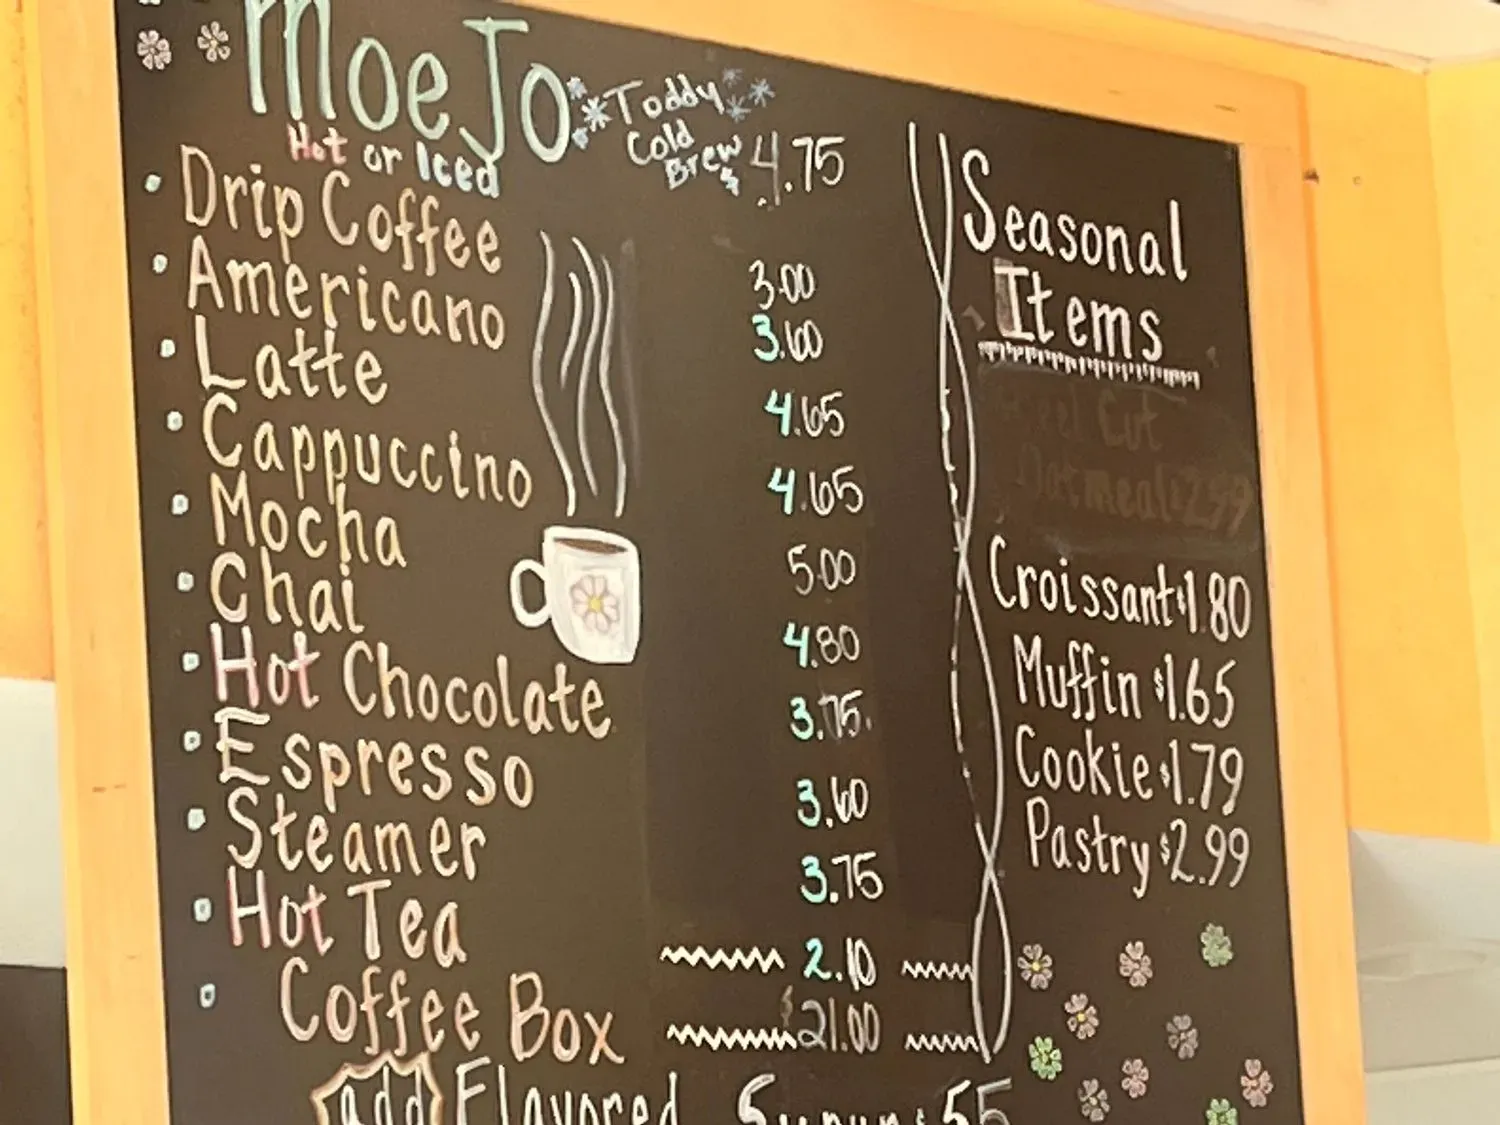 MoeJo
Hot or Iced
Toddy
Cold
Brew
$4.75
Drip Coffee 3.00
Americano 3.60
Latte 4.65
Cappuccino 4.65
Mocha 5.00
Chai 4.80
Hot Chocolate 3.75
Espresso 3.60
Steamer 3.75
Hot Tea 2.10
Coffee Box $21.00
add Flavored Syrup $.55
Seasonal
Items
Cut
Oatmeal $2.99
Croissant $1.80
Muffin $1.65
Cookie $1.79
Pastry $2.99